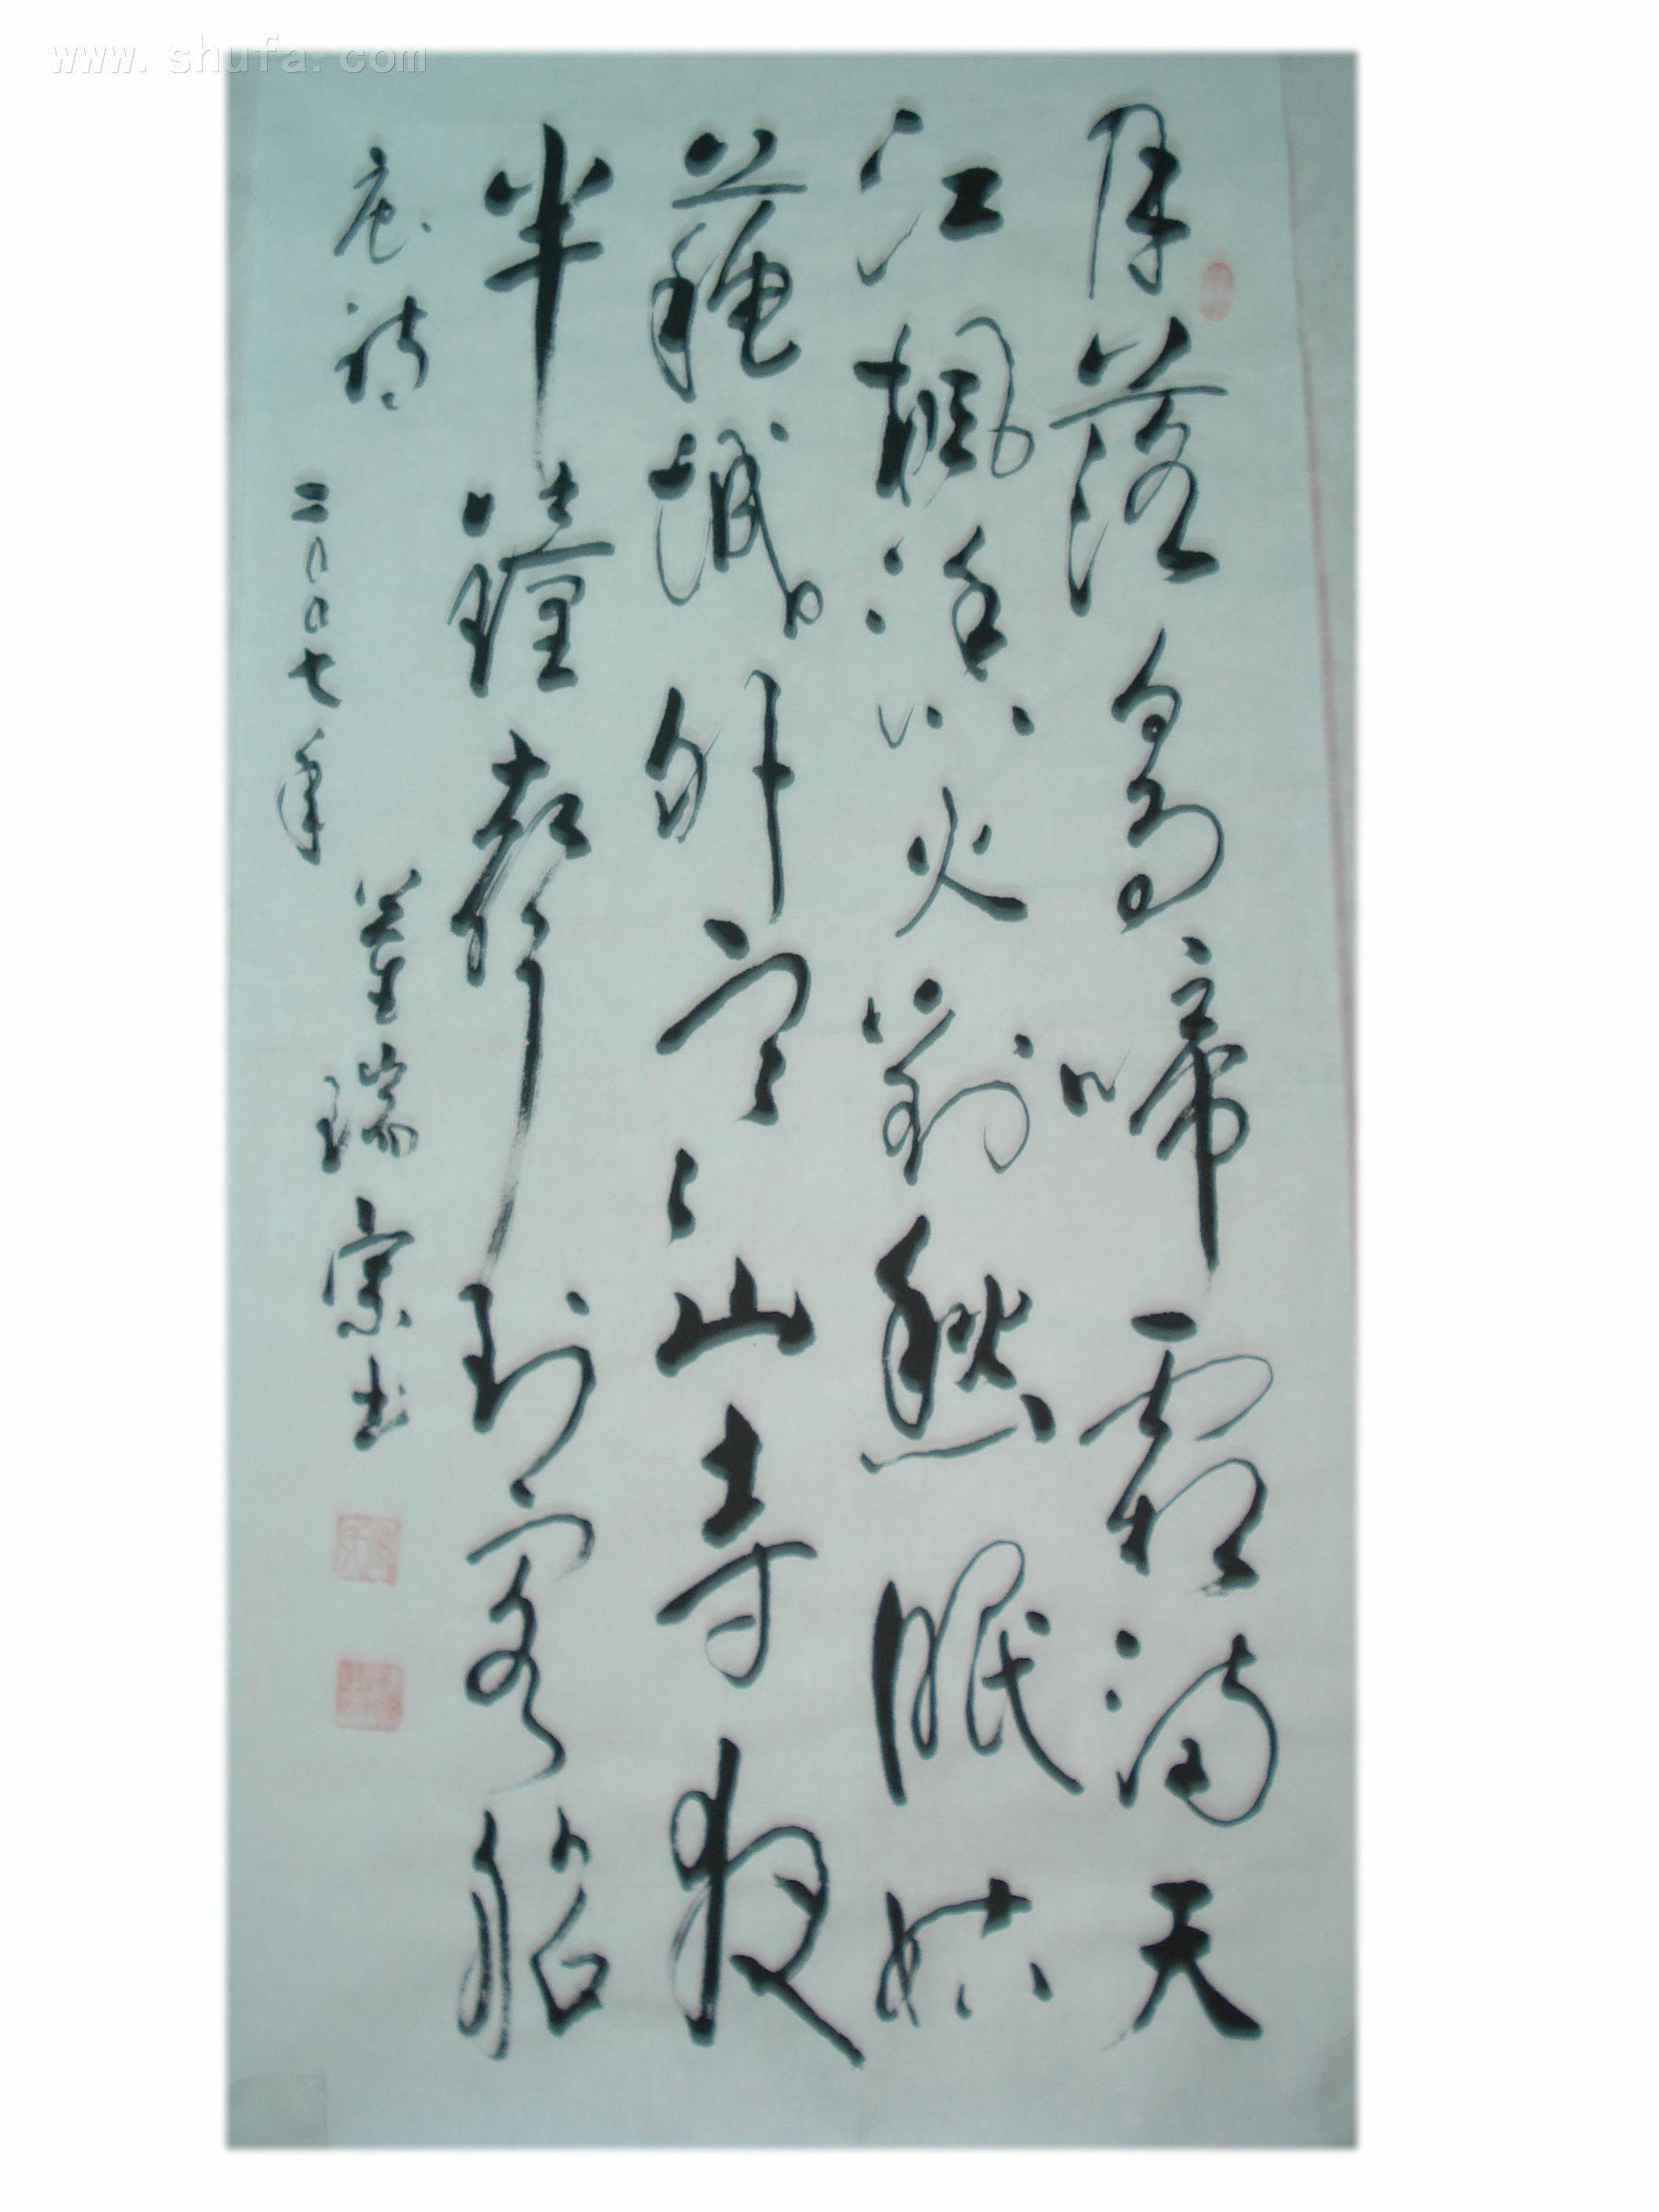 www.shufa.com
月落烏啼霜滿天
江楓漁火對愁眠姑
蘇城外寒山寺夜
半鐘聲到客船
唐诗
二〇〇七年
董瑞宗书